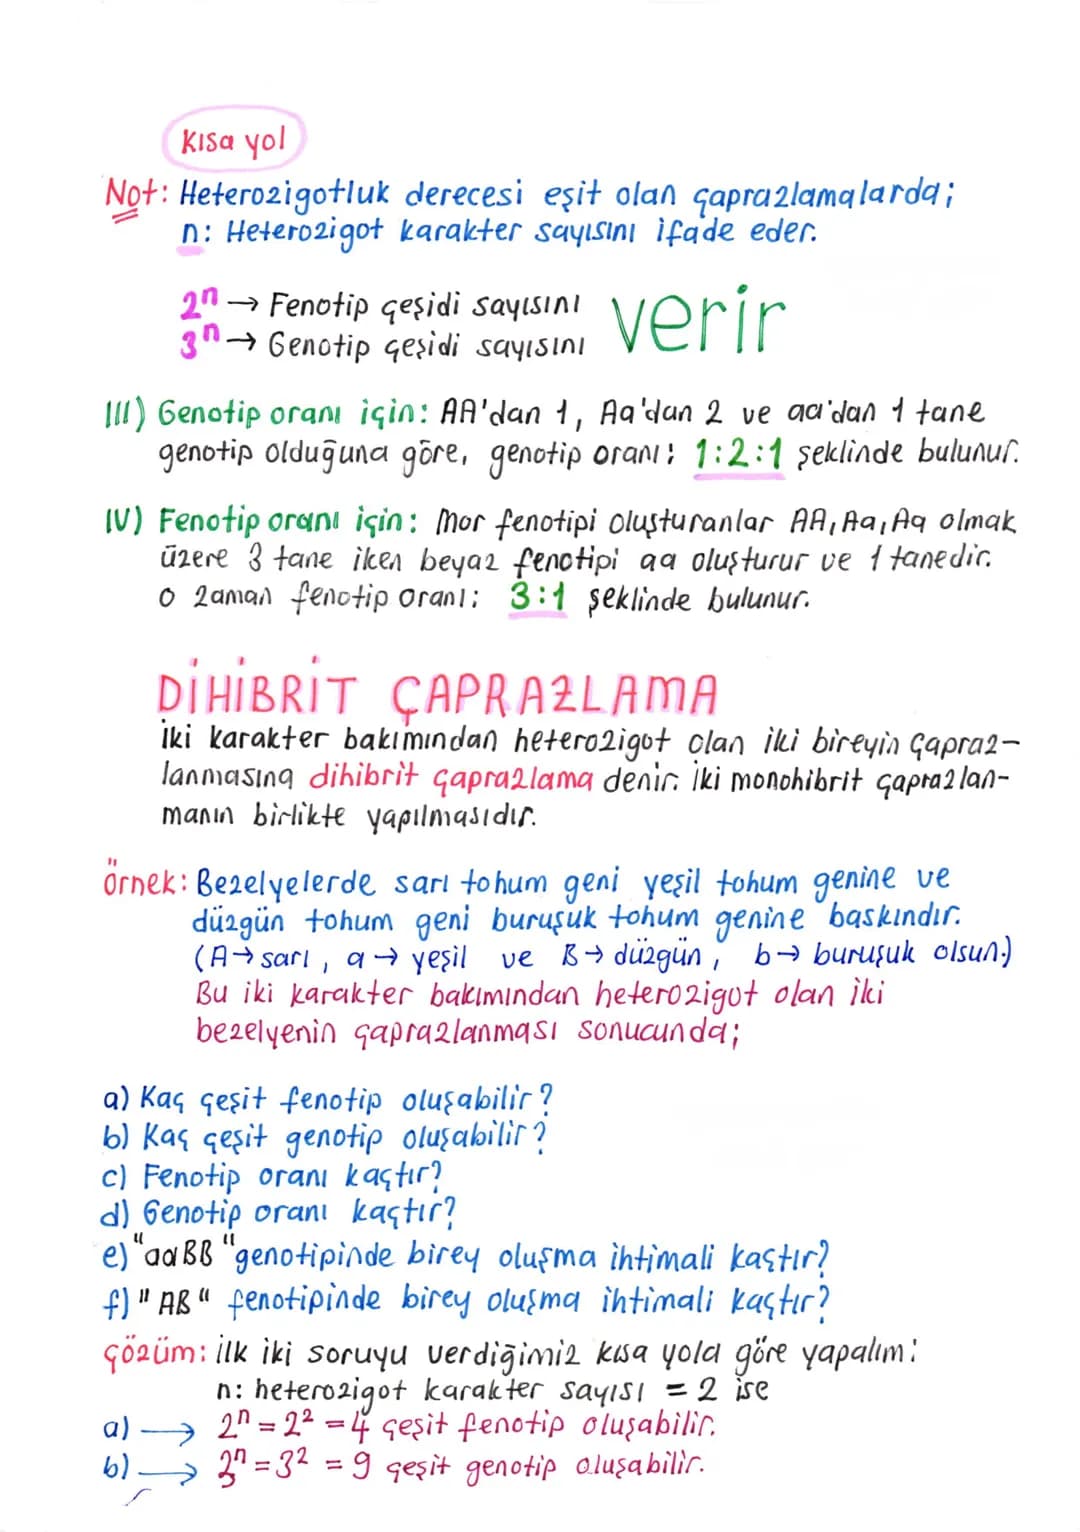 Kısa yol
Not: Heterozigotluk derecesi eşit olan çaprazlamalarda;
n: Heterozigot karakter sayısını ifade eder.
2ⁿ → Fenotip çeşidi sayısını verir
3ⁿ → Genotip çeşidi sayısını
III) Genotip oranı için: AA'dan 1, Aa'dan 2 ve aa'dan 1 tane
genotip olduğuna göre, genotip oranı: 1:2:1 şeklinde bulunur.
IV) Fenotip oranı için: Mor fenotipi oluşturanlar AA, Aa, Aa olmak
üzere 3 tane iken beyaz fenotipi aa oluşturur ve 1 tanedir.
O zaman fenotip oranı: 3:1 şeklinde bulunur.
DİHİBRİT ÇAPRAZLAMA
İki karakter bakımından heterozigot olan iki bireyin çapraz-
lanmasına dihibrit çaprazlama denir. İki monohibrit çaprazlan-
manın birlikte yapılmasıdır.
Örnek: Bezelyelerde sarı tohum geni yeşil tohum genine ve
düzgün tohum geni buruşuk tohum genine baskındır.
(A→ sarı, a → yeşil ve B→ düzgün, b→ buruşuk olsun.)
Bu iki karakter bakımından heterozigot olan iki
bezelyenin çaprazlanması sonucunda;
a) Kaç çeşit fenotip oluşabilir?
b) Kaç çeşit genotip oluşabilir?
c) Fenotip oranı kaçtır?
d) Genotip oranı kaçtır?
e) "aaBB" genotipinde birey oluşma ihtimali kaçtır?
f) "AB" fenotipinde birey oluşma ihtimali kaçtır?
Çözüm: İlk iki soruyu verdiğimiz kısa yola göre yapalım:
n: heterozigot karakter sayısı = 2 ise
a) → 2ⁿ = 2² = 4 çeşit fenotip oluşabilir.
b) → 3ⁿ = 3² = 9 çeşit genotip oluşabilir.